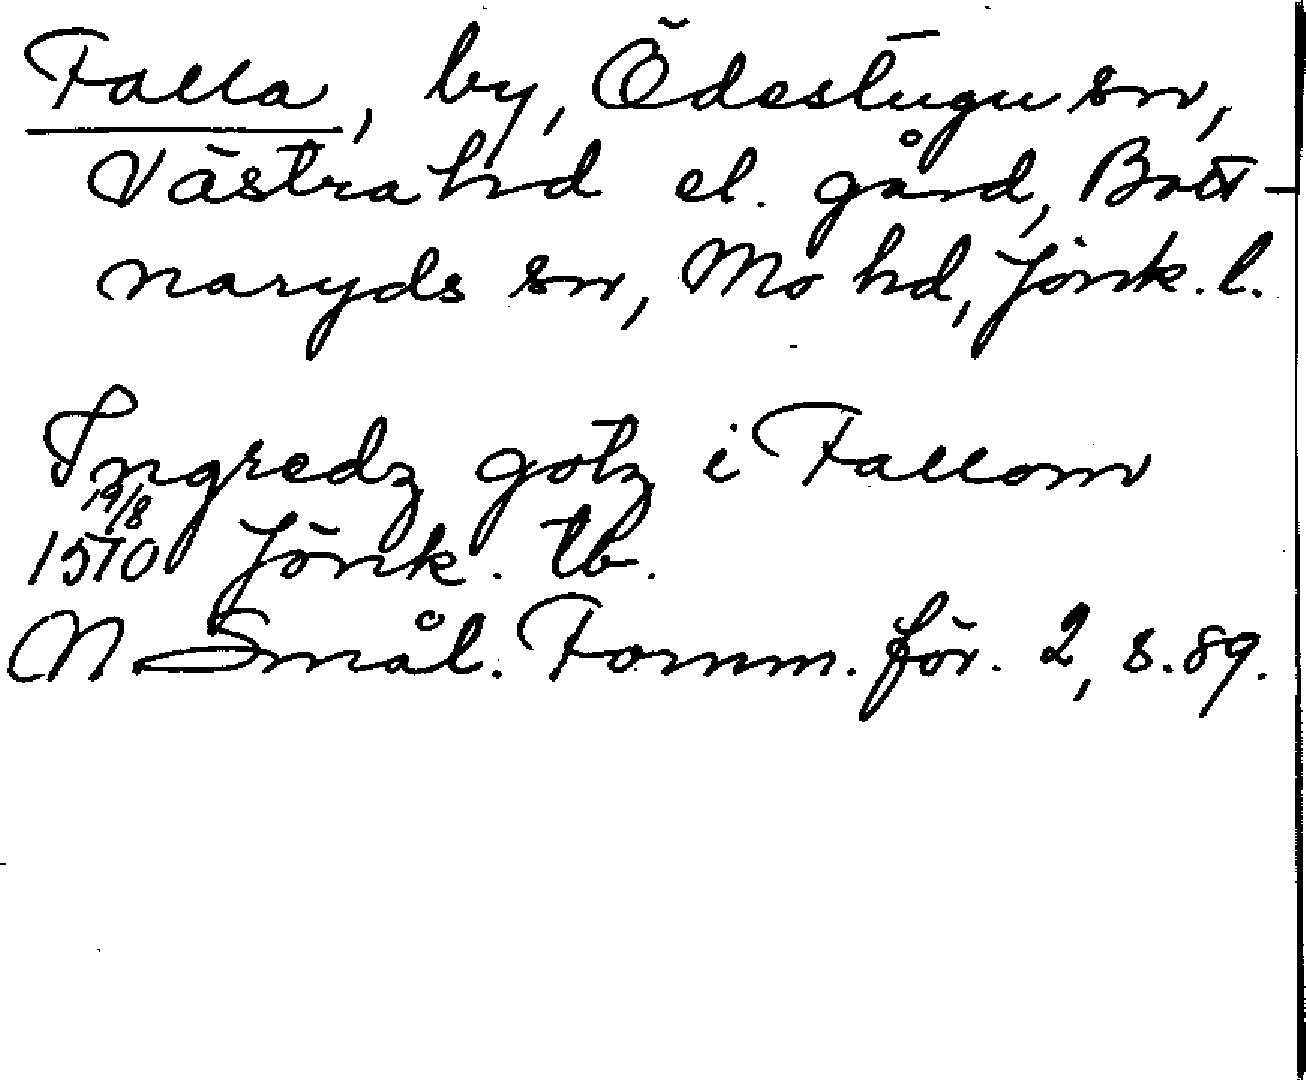 Falla, by, Ödestugu sn,
Västra hd el. gård, Bott-
naryds sn, Mo hd, Jönk. l.
Ingredz gotz i Fallom
19/8
1570 Jönk. tb.
N Smål. Fornm. för. 2, s. 89.